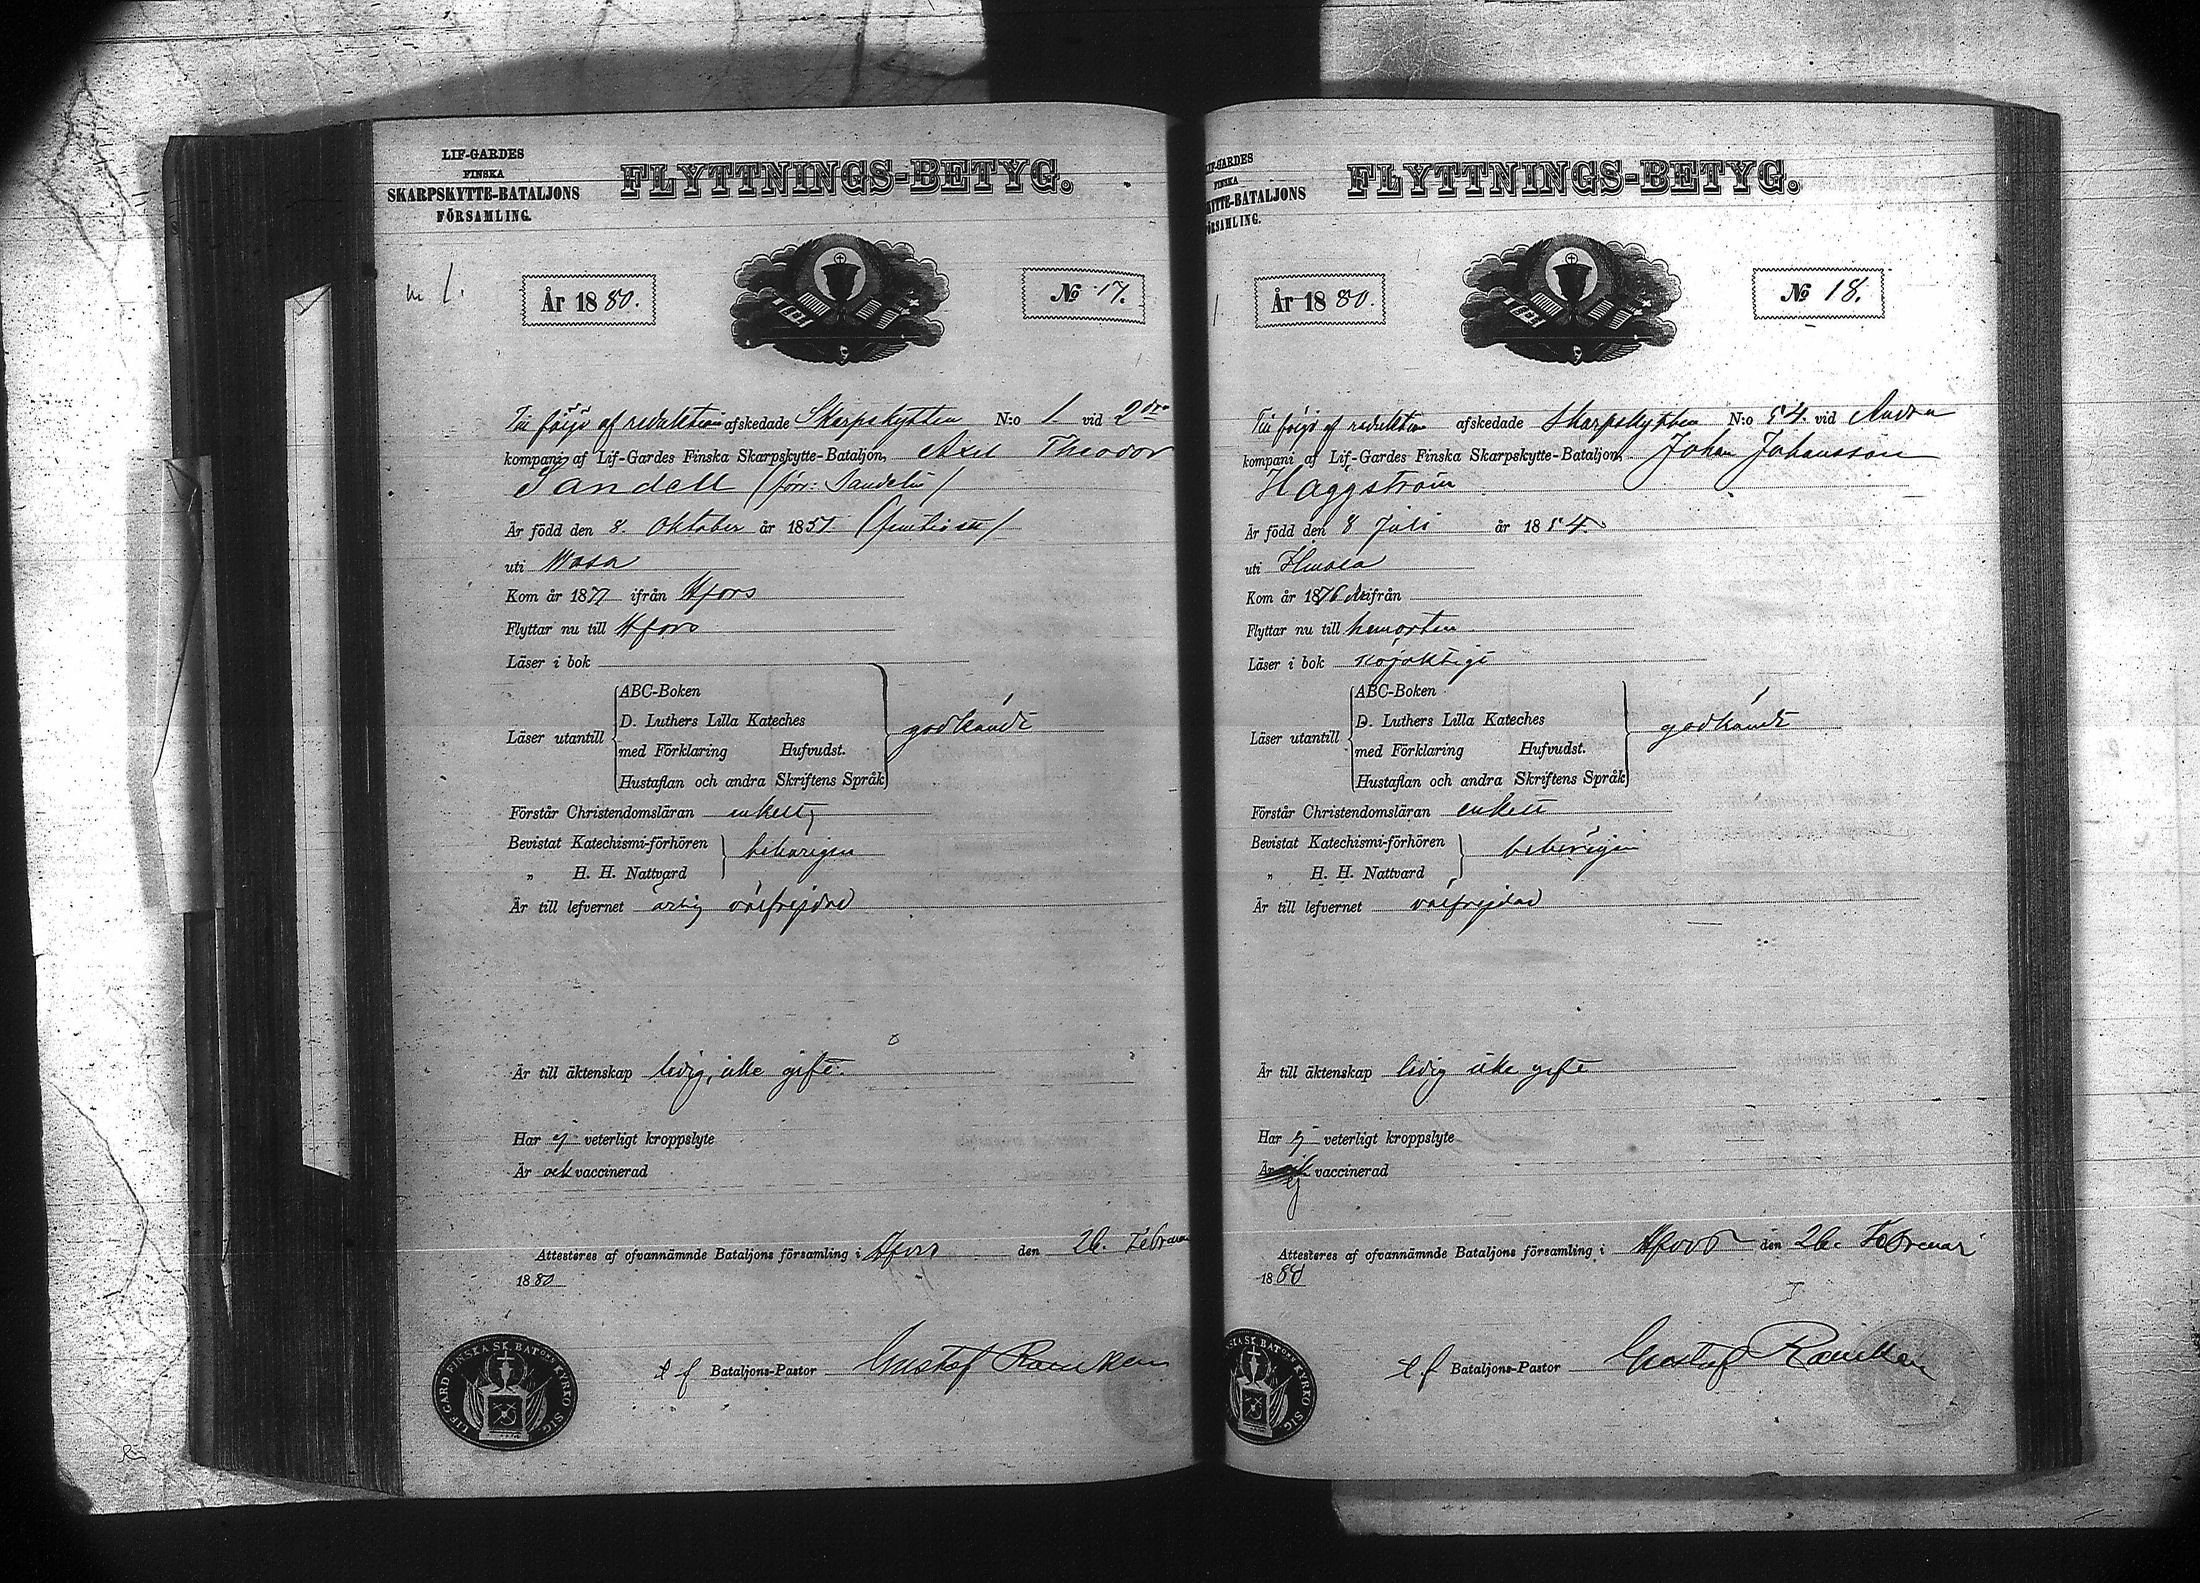 LIF-GARDES
FINSKA
SKARPSKYTTE-BATALJONS
FÖRSAMLING.
FLYTTNINGS-BETYG.
År 1880.
No 17.
Till följd af reduktion afskedade Skarpskytten N:o 1. vid 2dra
kompani af Lif-Gardes Finska Skarpskytte-Bataljon, Axel Theodor
Sandell (förr: Sandelin)
Är född den 8. Oktober år 1851
uti Wasa
Kom år 1877 ifrån Hfors
Flyttar nu till Hfors
Läser i bok
Läser utantill
ABC-Boken
D. Luthers Lilla Kateches
med Förklaring Hufvudst.
Hustaflan och andra Skriftens Språk
godkändt
Förstår Christendomsläran enkelt
Bevistat Katechismi-förhören
„ H. H. Nattvard
behörigen
Är till lefvernet ärlig välfrejdad
Är till äktenskap ledig, icke gift.
Har ej veterligt kroppslyte
Är ock vaccinerad
Attesteras af ofvannämnde Bataljons församling i Hfors den 26. Februari
1880
e f Bataljons-Pastor Gustaf Rancken
LIF-GARD FINSKA SK. BATons KYRKO SIG.
LIF-GARDES
FINSKA
SKYTTE-BATALJONS
FÖRSAMLING.
FLYTTNINGS-BETYG.
År 1880.
No 18.
Till följd af reduktion afskedade Skarpskytten N:o 54. vid Andra
kompani af Lif-Gardes Finska Skarpskytte-Bataljon, Johan Johansson
Häggström
Är född den 8 Juli år 1854.
uti
Kom år 1876 ifrån
Flyttar nu till hemorten
Läser i bok nöjaktigt
Läser utantill
ABC-Boken
D. Luthers Lilla Kateches
med Förklaring Hufvudst.
Hustaflan och andra Skriftens Språk
godkändt
Förstår Christendomsläran enkelt
Bevistat Katechismi-förhören
„ H. H. Nattvard
behörigen
Är till lefvernet välfrejdad
Är till äktenskap ledig icke gift
Har ej veterligt kroppslyte
Är vaccinerad
ej
Attesteras af ofvannämnde Bataljons församling i Hfors den 26. Februari
1880
e f Bataljons-Pastor Gustaf Rancken
SKA SK. BATons KYRKO SIG.